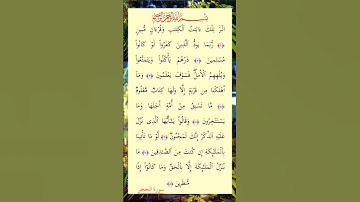 بِسْمِ اللَّهِ الرَّحْمَٰنِ الرَّحِيمِ
الٓرۚ تِلْكَ ءَايَٰتُ الْكِتَٰبِ وَقُرْءَانٍ مُّبِينٍ
﴿١﴾ رُّبَمَا يَوَدُّ الَّذِينَ كَفَرُوا لَوْ كَانُوا
مُسْلِمِينَ ﴿٢﴾ ذَرْهُمْ يَأْكُلُوا وَيَتَمَتَّعُوا
وَيُلْهِهِمُ الْأَمَلُ فَسَوْفَ يَعْلَمُونَ ﴿٣﴾ وَمَا
أَهْلَكْنَا مِن قَرْيَةٍ إِلَّا وَلَهَا كِتَابٌ مَّعْلُومٌ
﴿٤﴾ مَّا تَسْبِقُ مِنْ أُمَّةٍ أَجَلَهَا وَمَا
يَسْتَـْٔخِرُونَ ﴿٥﴾ وَقَالُوا يَٰٓأَيُّهَا الَّذِى نُزِّلَ
عَلَيْهِ الذِّكْرُ إِنَّكَ لَمَجْنُونٌ ﴿٦﴾ لَّوْ مَا تَأْتِينَا
بِالْمَلَٰٓئِكَةِ إِن كُنتَ مِنَ الصَّٰدِقِينَ ﴿٧﴾ مَا
نُنَزِّلُ الْمَلَٰٓئِكَةَ إِلَّا بِالْحَقِّ وَمَا كَانُوا إِذًا
مُّنظَرِينَ ﴿٨﴾
سورة الحجر